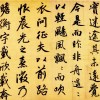 實迷途其未遠覺
今是而昨非舟遙
以輕颺風飄而吹
衣問征夫以前路
恨晨光之熹微乃
瞻衡宇載欣載奔